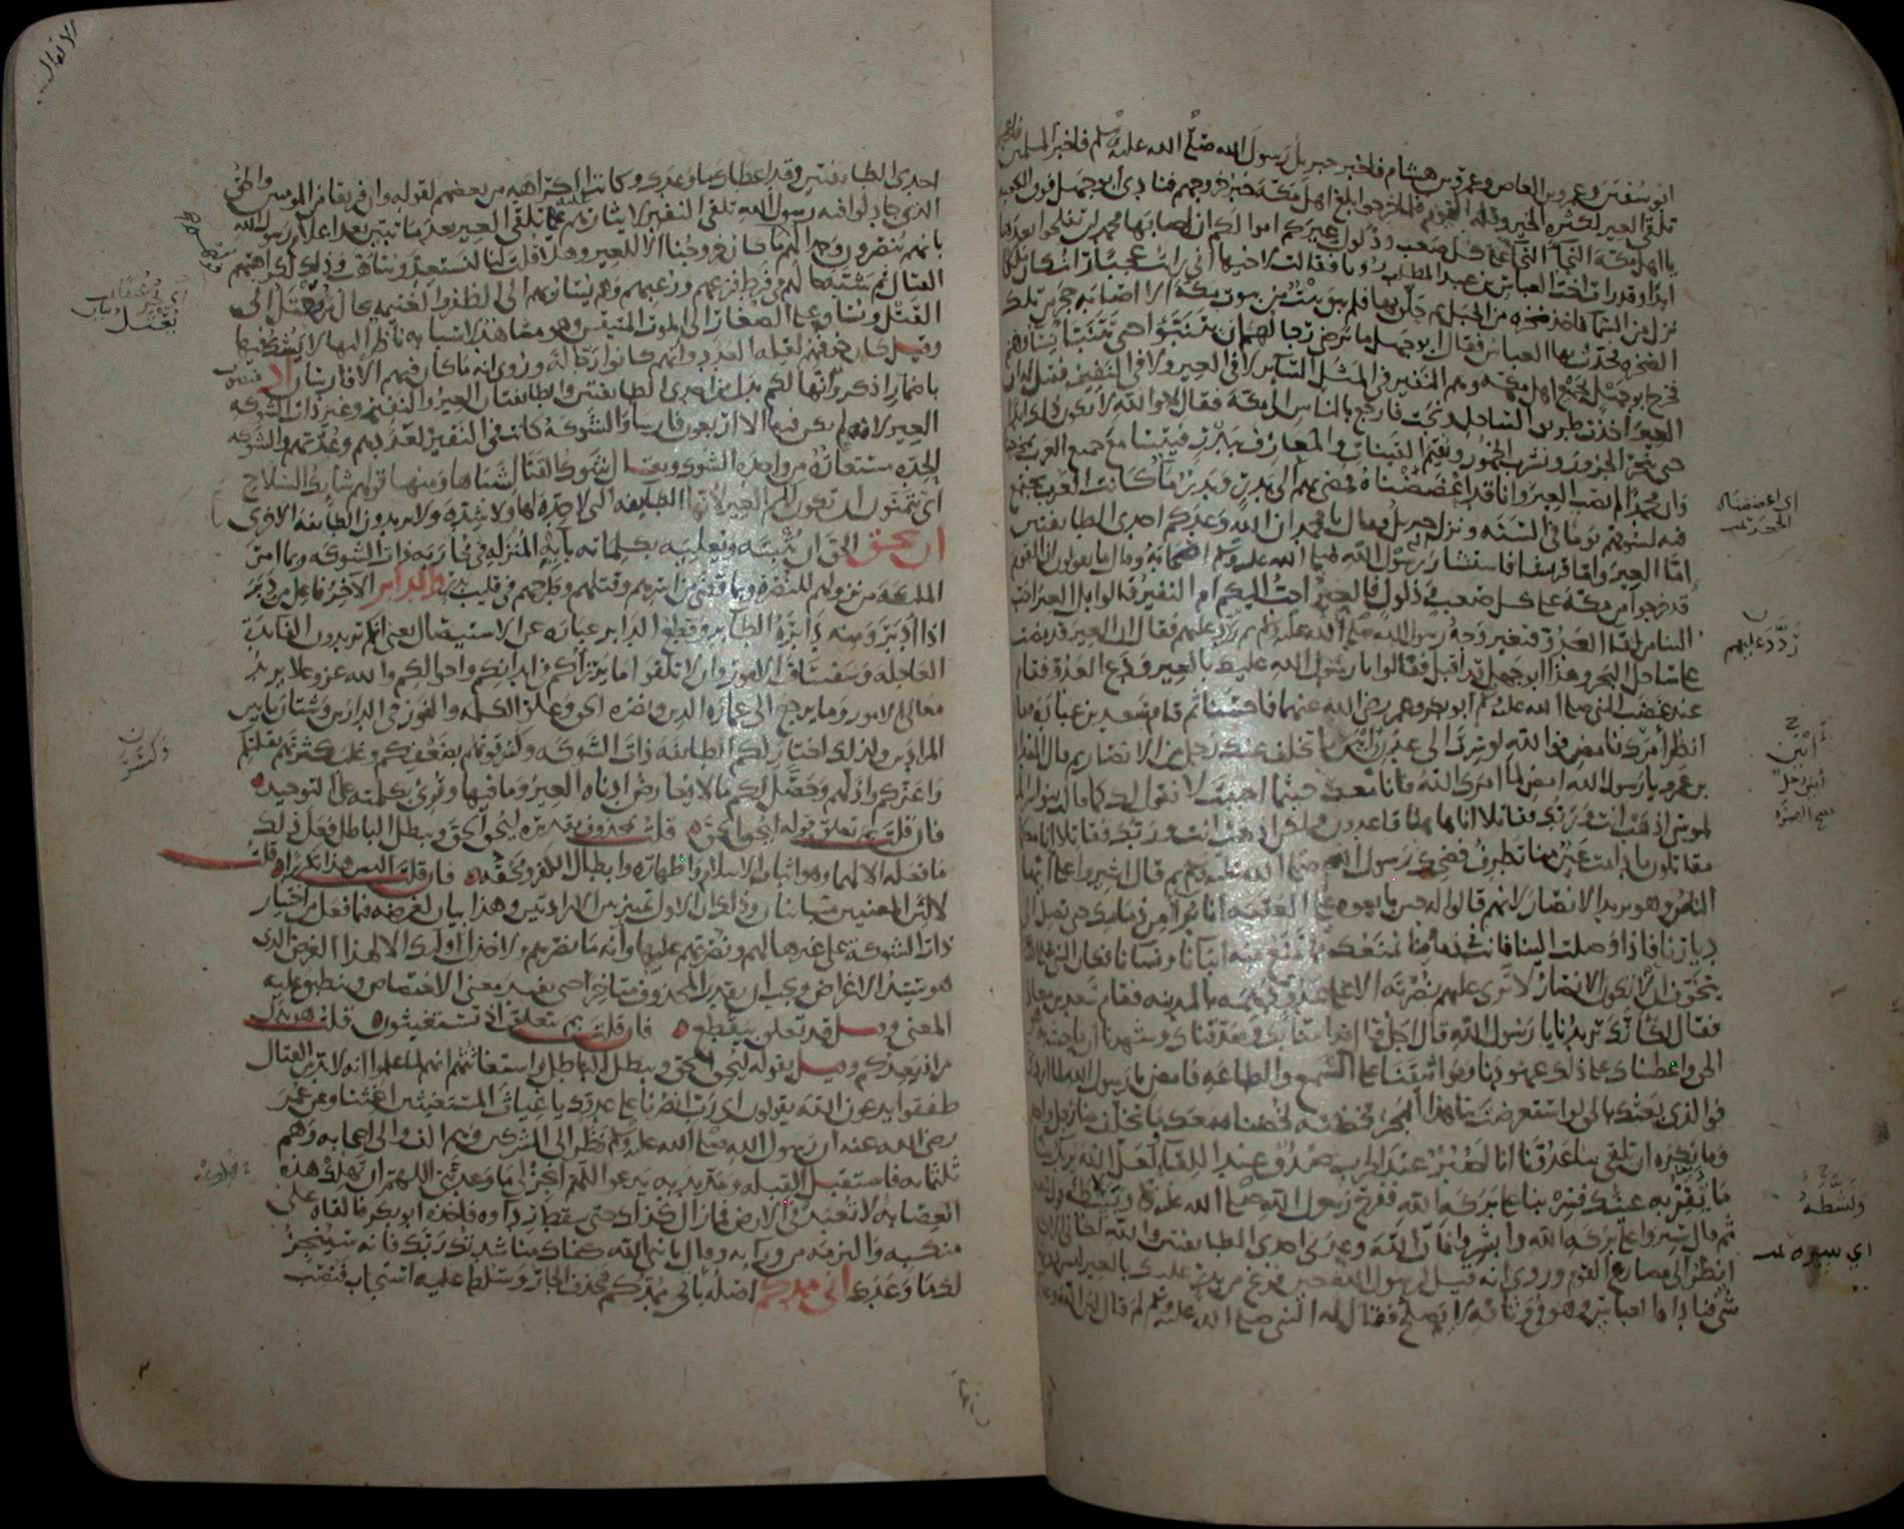 ابو سفين وعمرو بن العاص وعمرو بن هشام فاخبر جبريل رسول الله صلى الله عليه وسلم فاخبر المسلمين
تلقي العير لكثرة الخير وقلة القوم فلما خرجوا بلغ اهل مكة خبر خروجهم فنادى ابو جهل فوق الكعبة
يا اهل مكة النجا النجا على كل صعب وذلول عيركم اموالكم ان اصابها محمد لن تفلحوا بعدها
ابدا وقد رات اخت العباس بن عبد المطلب رويا فقالت لاخيها اني رايت عجبا رايت كان ملكا
نزل من السما فاخذ صخرة من الجبل ثم حلق بها فلم يبق بيت من بيوت مكة الا اصابه حجر من تلك
الصخرة فحدث بها العباس فقال ابو جهل ما يرضى رجالهم ان يتنبوا حتى تتنبا نساوهم
فخرج ابو جهل بجميع اهل مكة وهم النفير في المثل الساير لا في العير ولا في النفير فقيل له ان
العير اخذت طريق الساحل ونجت فارجع بالناس الى مكة فقال لا والله لا يكون ذلك ابدا
حتى ننحر الجزور ونشرب الخمور ونقيم القينات والمعازف ببدر فيتسامع جميع العرب بمخرجنا
وان محمدا لم يصب العير وانا قد اعضضناه فمضى بهم الى بدر وبدر ما كانت العرب تجتمع
فيه لسوقهم يوما في السنة ونزل جبريل فقال يا محمد ان الله وعدكم احدى الطايفتين
اما العير واما قريشا فاستشار رسول الله صلى الله عليه وسلم اصحابه وقال ما تقولون ان القوم
قد خرجوا من مكة على كل صعب وذلول فالعير احب اليكم ام النفير قالوا بل العير احب
الينا من لقا العدو فتغير وجه رسول الله صلى الله عليه وسلم ثم ردد عليهم فقال ان العير قد مضت
على ساحل البحر وهذا ابو جهل قد اقبل فقالوا يا رسول الله عليك بالعير ودع العدو فقام
عند غضب النبي صلى الله عليه وسلم ابو بكر وعمر رضي الله عنهما فاحسنا ثم قام سعد بن عبادة فقال
انظر امرك فامض فوالله لو سرت الى عدن ابين ما تخلف عنك رجل من الانصار ثم قال المقداد
بن عمرو يا رسول الله امض لما امرك الله فانا معك حيثما احببت لا نقول لك كما قال بنو اسرايل
لموسى اذهب انت وربك فقاتلا انا هاهنا قاعدون ولكن اذهب انت وربك فقاتلا انا معكما
مقاتلون ما دامت عين منا تطرف فضحك رسول الله صلى الله عليه وسلم ثم قال اشيروا علي ايها
الناس وهو يريد الانصار لانهم قالوا له حين بايعوه على العقبة انا براء من ذمامك حتى تصل الى
ديارنا فاذا وصلت الينا فانت في ذمامنا نمنعك مما نمنع منه ابانا ونسانا فكان النبي عليه السلام
يتخوف ان لا تكون الانصار لا ترى عليهم نصرته الا على عدو دهمه بالمدينة فقام سعد بن معاذ
فقال لكانك تريدنا يا رسول الله قال اجل قال قد امنا بك وصدقناك وشهدنا ان ما جئت به هو
الحق واعطيناك على ذلك عهودنا ومواثيقنا على السمع والطاعة فامض يا رسول الله لما اردت
فوالذي بعثك بالحق لو استعرضت بنا هذا البحر فخضته لخضناه معك ما تخلف منا رجل واحد
وما نكره ان تلقى بنا عدونا انا لصبر عند الحرب صدق عند اللقا ولعل الله يريك منا
ما تقر به عينك فسر بنا على بركة الله ففرح رسول الله صلى الله عليه وسلم وبسطه قول سعد
ثم قال سيروا على بركة الله وابشروا فان الله وعدني احدى الطايفتين والله لكاني الان
انظر الى مصارع القوم وروي انه قيل لرسول الله حين فرغ من بدر عليك بالعير ليس دونها
شي فناداه العباس وهو في وثاقه لا يصلح فقال له النبي صلى الله عليه وسلم لم قال لان الله وعدك
اي اعضضناه
ردد عليهم
ابين
ابين رجل
ونشطه
اي سيره
الانفال
احدى الطايفتين وقد اعطاك ما وعدك وكانت الكراهية من بعضهم لقوله وان فريقا من المومنين والحق
الذي جادلوا فيه رسول الله تلقي النفير لايثارهم عليه تلقي العير بعد ما تبين بعد اعلام رسول الله
بانهم ينصرون وجدالهم ما كان خروجنا الا للعير وهلا قلت لنا لنستعد ونتاهب وذلك لكراهتهم
القتال ثم شبه حالهم في فرط فزعهم ورعبهم وهم يسار بهم الى الظفر والغنيمة بحال من يعتل الى
القتل ويساق على الصغار الى الموت المتيقن وهو مشاهد لاسبابه ناظر اليها لا يشك فيها
وقيل كان خوفهم لقلة العدد وانهم كانوا رجالة وروي انه ما كان فيهم الا فارسان اذ منصوب
باضمار اذكر وانها لكم بدل من احدى الطايفتين والطايفتان العير والنفير وغير ذات الشوكة
العير لانه لم يكن فيها الا اربعون فارسا والشوكة كانت في النفير لعددهم وعدتهم والشوكة
الحدة مستعارة من واحدة الشوك ويقال شوك القنا لشباها ومنها قولهم شايك السلاح
اي تتمنون ان تكون لكم العير لانها الطايفة التي لا حدة لها ولا شدة ولا تريدون الطايفة الاخرى
ان يحق الحق ان يثبته ويعليه بكلماته باياته المنزلة في محاربة ذات الشوكة وبما امر
الملايكة من نزولهم للنصرة وبما قضى من اسرهم وقتلهم وطرحهم في قليب بدر والدابر الاخر فاعل من دبر
اذا ادبر ومنه دابرة الطاير وقطع الدابر عبارة عن الاستيصال يعني انكم تريدون الفايدة
العاجلة وسفساف الامور وان لا تلقوا ما يرزاكم في ابدانكم واحوالكم والله عز وعلا يريد
معالي الامور وما يرجع الى عمارة الدين ونصرة الحق وعلو الكلمة والفوز في الدارين وشتان ما بين
المرادين ولذلك اختار لكم الطايفة ذات الشوكة وكسر قوتهم بضعفكم وغلب كثرتهم بقلتكم
واعزكم واذلهم وحصل لكم ما لا يعارض ادناه العير وما فيها وقرئ بكلمته على التوحيد
فان قلت بم تعلق قوله ليحق الحق قلت بمحذوف تقديره ليحق الحق ويبطل الباطل فعل ذلك
ما فعله الا لهما وهو اثبات الاسلام واظهاره وابطال الكفر ومحقه فان قلت اليس هذا تكرارا قلت
لا لان المعنيين متباينان وذلك ان الاول تمييز بين الارادتين وهذا بيان لغرضه فيما فعل من اختيار
ذات الشوكة على غيرها لهم ونصرتهم عليها وانه ما نصرهم ولا خذل اوليك الا لهذا الغرض الذي
هو سيد الاغراض ويجب ان يقدر المحذوف متاخرا حتى يفيد معنى الاختصاص وينطبق عليه
المعنى وقيل قد تعلق بيقطع فان قلت بم يتعلق اذ تستغيثون قلت هو بدل
من اذ يعدكم وقيل بقوله ليحق الحق ويبطل الباطل واستغاثتهم انهم لما علموا انه لا بد من القتال
طفقوا يدعون الله يقولون اي رب انصرنا على عدوك يا غياث المستغيثين اغثنا وعن عمر
رضي الله عنه ان رسول الله صلى الله عليه وسلم نظر الى المشركين وهم الف والى اصحابه وهم
ثلثماية فاستقبل القبلة ومد يديه يدعو اللهم انجز لي ما وعدتني اللهم ان تهلك هذه
العصابة لا تعبد في الارض فما زال كذلك حتى سقط رداوه فاخذه ابو بكر فالقاه على
منكبيه والتزمه من ورايه وقال يا نبي الله كفاك مناشدتك ربك فانه سينجز
لك ما وعدك اني ممدكم اصله باني ممدكم فحذف الجار وسلط عليه استجاب فنصب